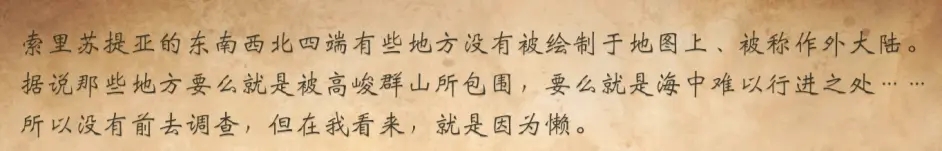 索里苏提亚的东南西北四端有些地方没有被绘制于地图上、被称作外大陆。
据说那些地方要么就是被高峻群山所包围，要么就是海中难以行进之处……
所以没有前去调查，但在我看来，就是因为懒。